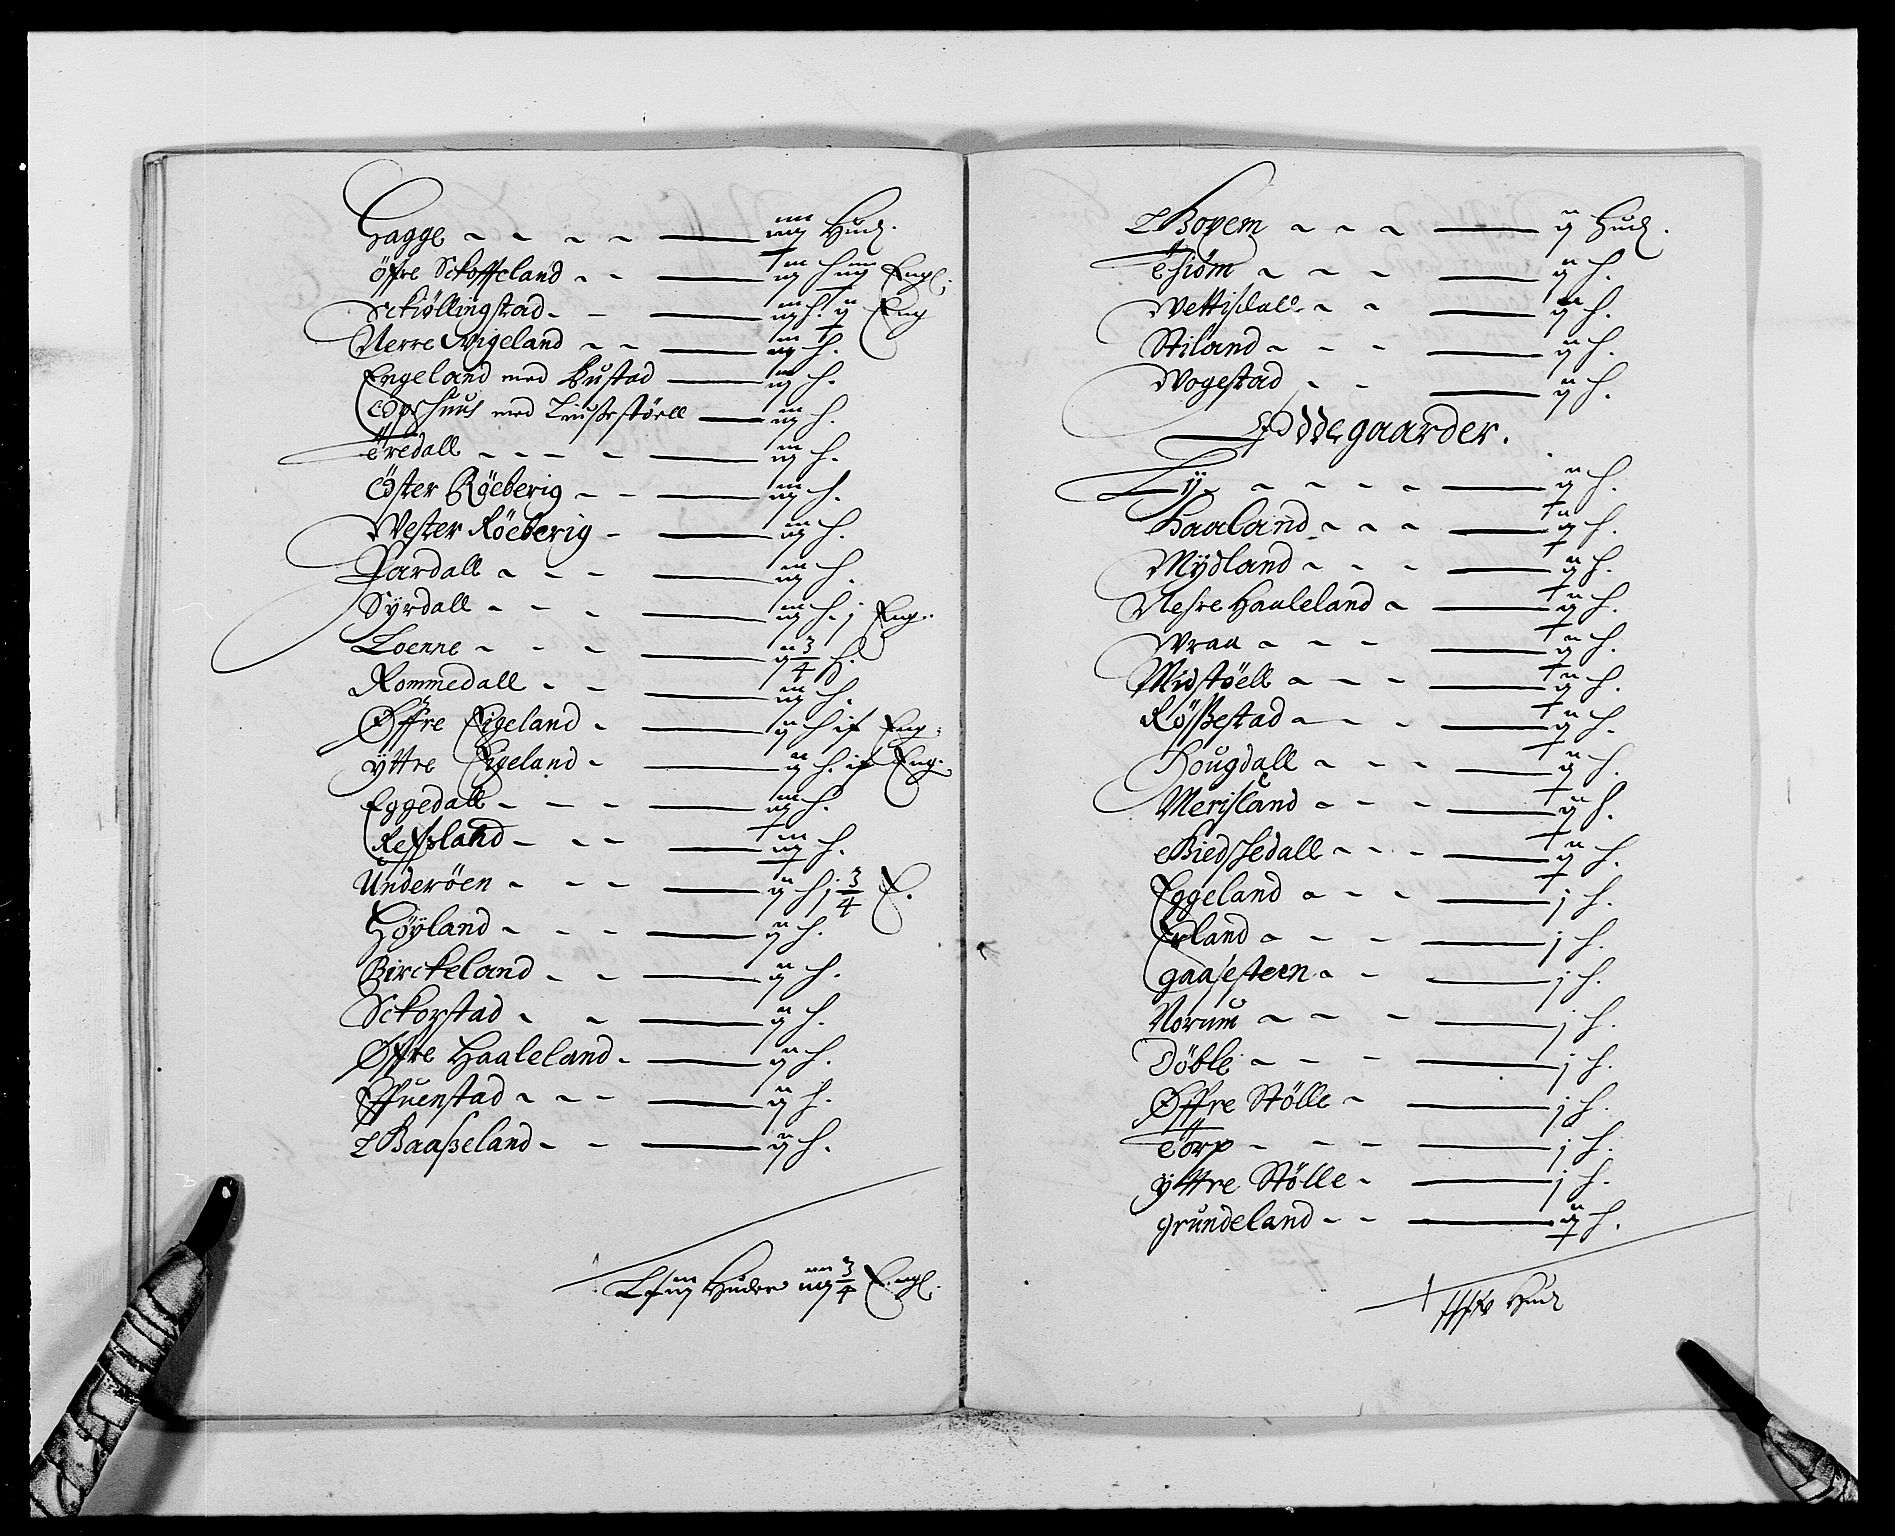 Hagge - - - - iiij Hud.
öfre Sckoffeland - - iij h iiij Engl.
Sckiöllingstad - - iij h. ij Eng
Nerre Wigeland - - iij h.
Engeland med Bustad iij h.
Opshuus med iij h.
Tredall - - - - iij h.
Öster Röeberig - - iij h.
Wester Röeberig - iij h.
Jardall - - - iij h.
Syrdall - - - iij h. j Eng.
Loenne - - - ij 3/4 h.
Rommedall - - iij h.
Øffre Eigeland - ij h if Eng.
yttre Eigeland - ij h. if Eng.
Eggedall - - - iij h.
Refsland - - - iij h.
Underöen - - - ij h j 3/4 E.
Höyland - - - ij h.
Birckeland - - ij h.
Sckorstad - - ij h.
Øffre Haaleland - ij h.
Ffuenstad - - - ij h.
Baaßeland - - ij h.
Huder iiij 3/4 Engl.
Boyem - - - ij Hud.
Tiöm - - - ij h.
Wettisdall - - ij h.
Stiland - - - ij h.
Wogestad - - ij h.
Øddegaarder.
Ly - - - - ij h.
Haaland - - - ij h.
Mydland - - - ij h.
Nesre Haaleland - ij h.
Wraa - - - ij h.
Midstöell - - - ij h.
Rößestad - - - ij h.
Hougdall - - - ij h.
Merisland - - - ij h.
Biedshedall - - - ij h.
Eggeland - - - j h.
Erland - - - j h.
gaasesteen - - j h.
Norum - - - j h.
Döble - - - j h.
Øffre Stölle - j h.
Torp - - - j h.
yttre Stölle - j h.
grundeland - - ij h.
Hud